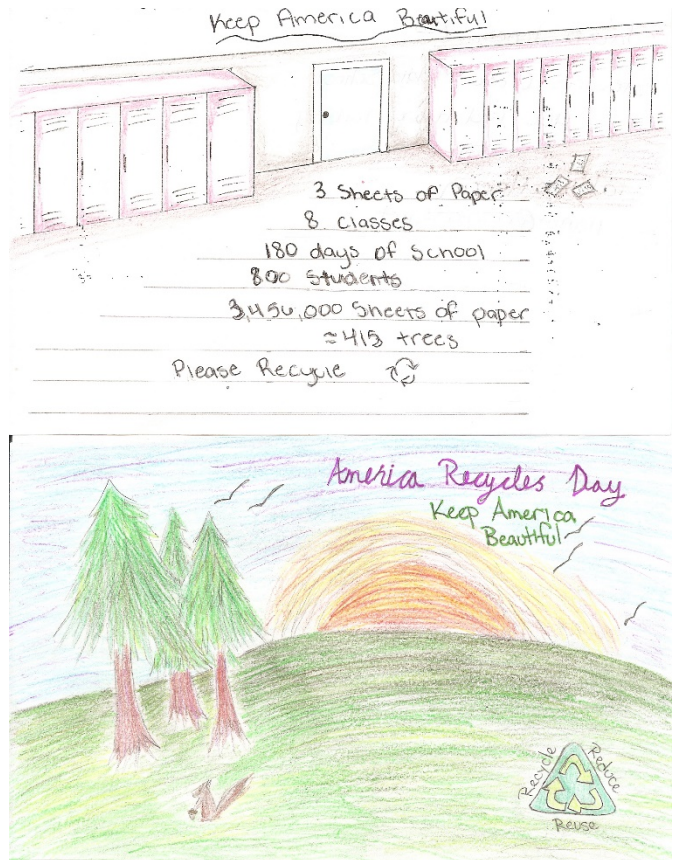 Keep America Beautiful
3 Sheets of Paper
8 classes
180 days of School
800 Students
3,456,000 Sheets of paper
≈415 trees
Please Recycle
America Recycles Day
Keep America
Beautiful
Recycle
Reduce
Reuse